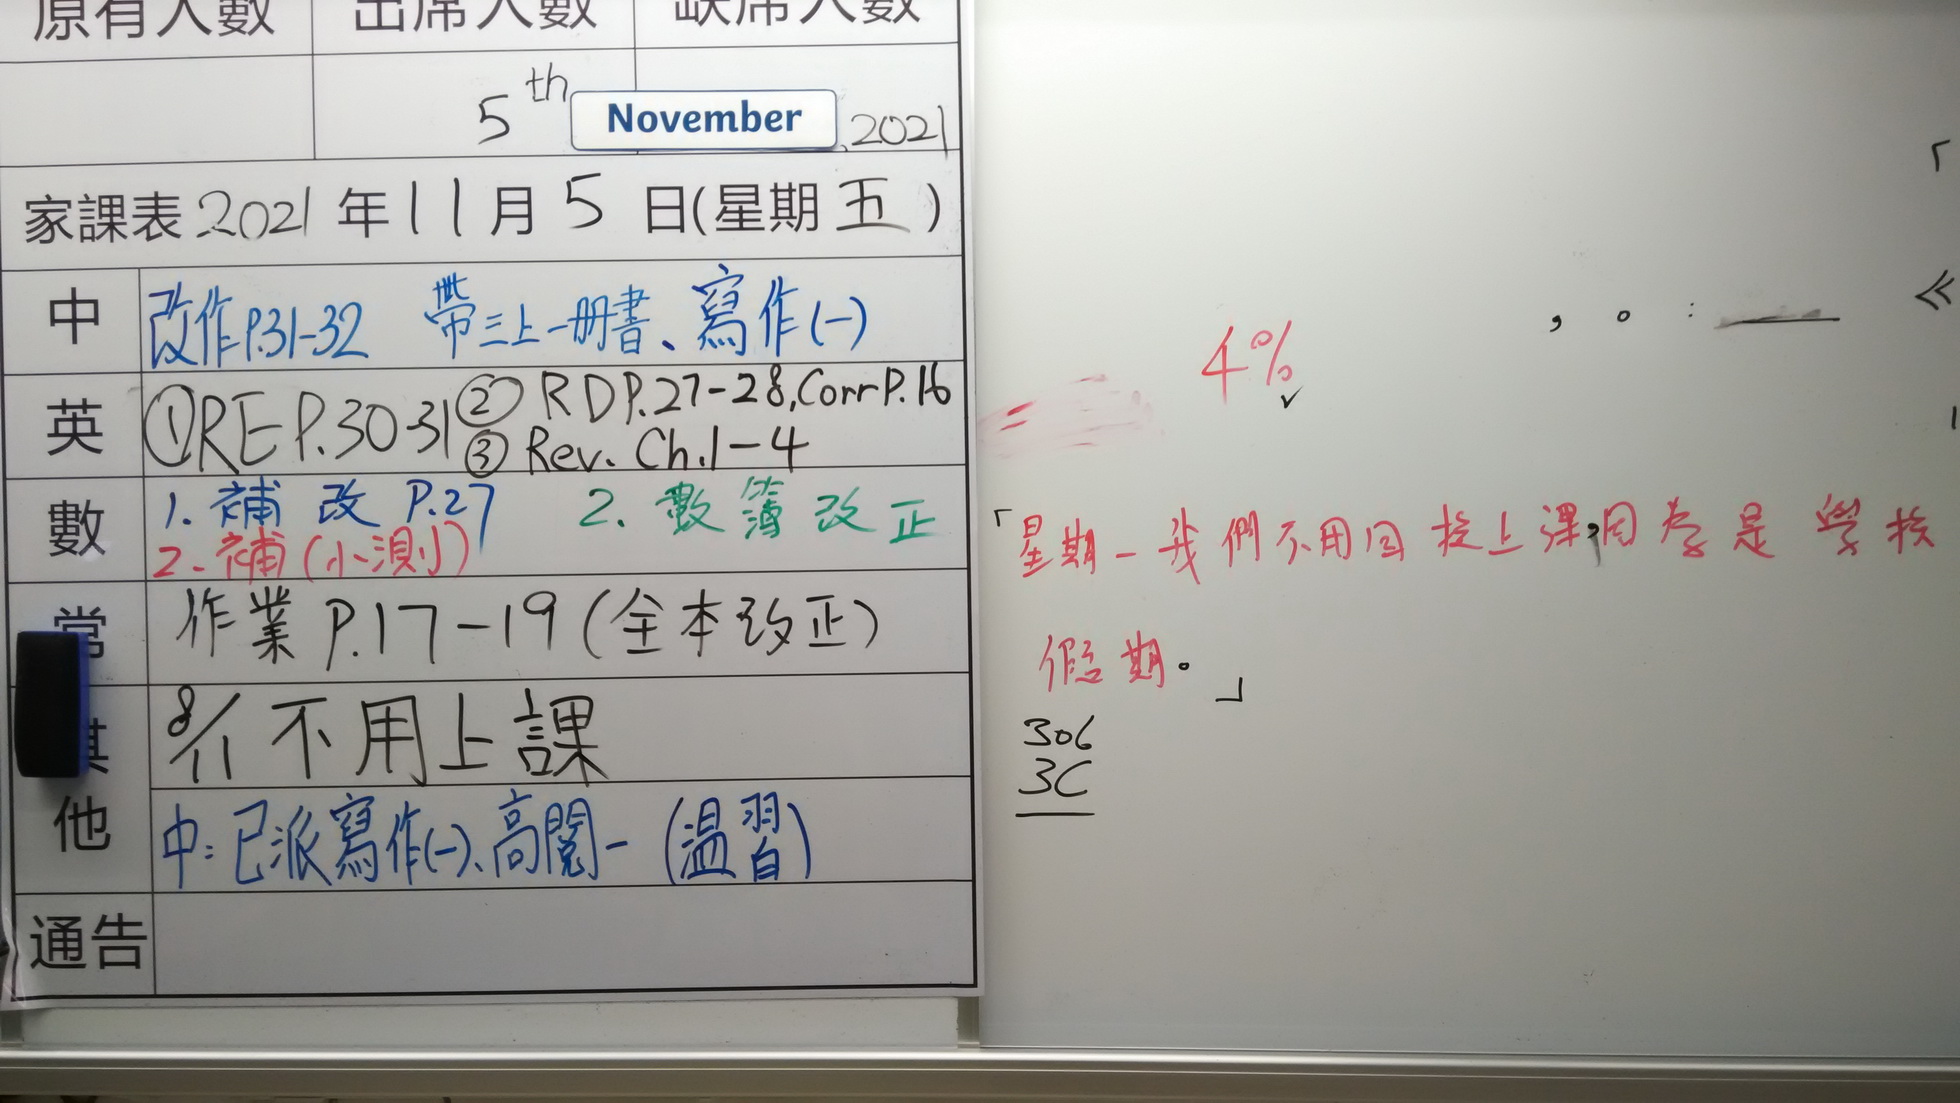 原有人數 出席人數 缺席人數
5th November, 2021
家課表 2021年11月5日(星期五)
中 改作P.31-32 帶三上一冊書、寫作(一)
英 ①RE P.30-31 ② RD P.27-28, Corr P.16
③ Rev. Ch.1-4
數 1. 補改 P.27 2. 數簿改正
2. 補(小測)
常 作業 P.17-19 (全本改正)
其他 8/11 不用上課
中：已派寫作(一)、高閱一 (溫習)
通告
「
， 。 : 《
4%
=
「星期一我們不用回校上課，因為是學校
假期。」
306
3C